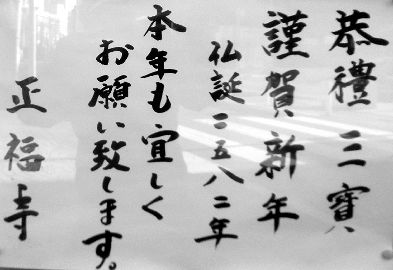 恭禮三寶
謹賀新年
仏誕二五八二年
本年も宜しく
お願い致します。
正福寺